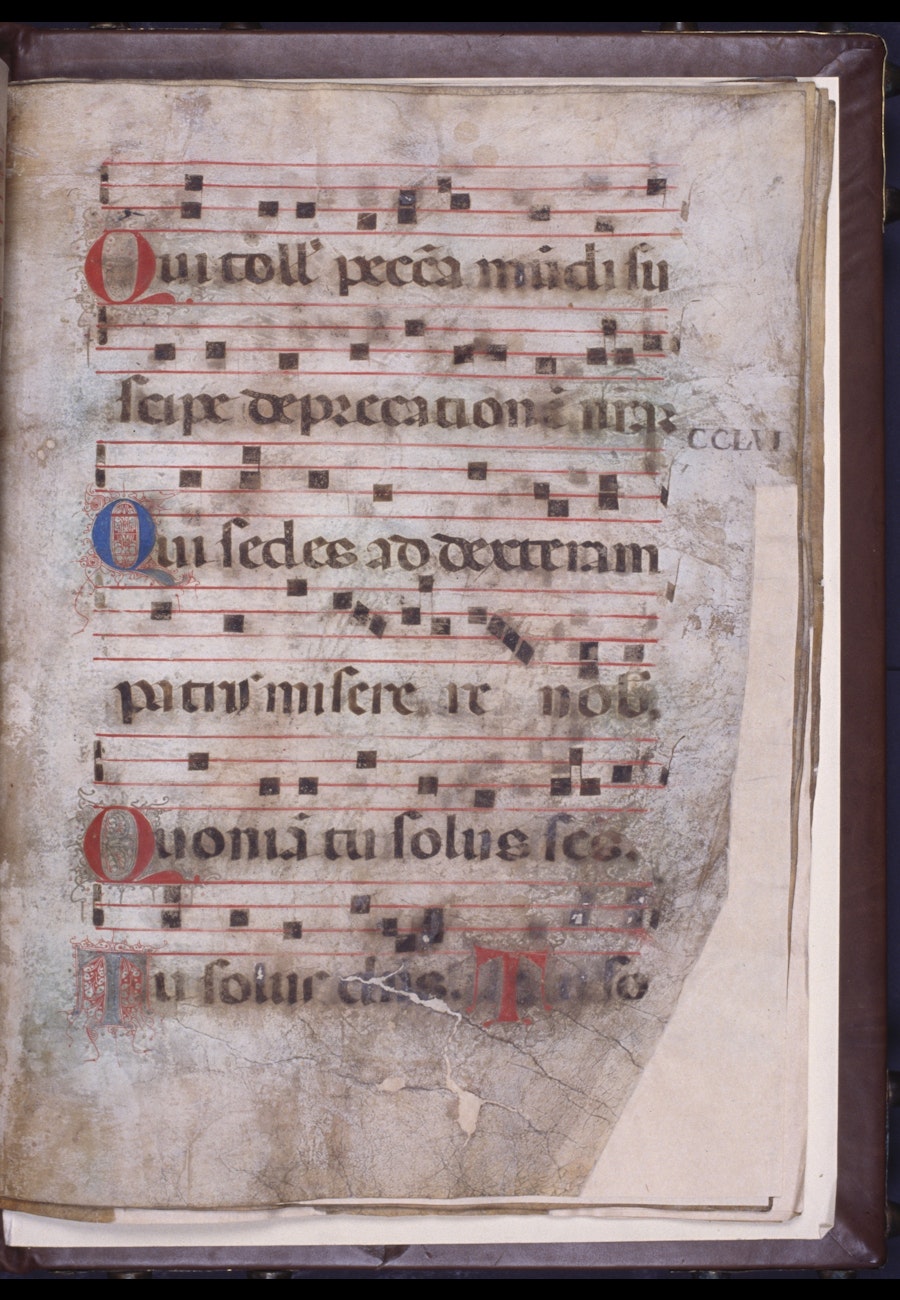 Qui toll' peccā mūdi su
scipe deprecationē nr̄aꝫ
CCLVI
Qui sedes ad dexteram
patris misere re nob̄.
Quoniā tu solus scs.
Tu solus dn̄s. Tu so